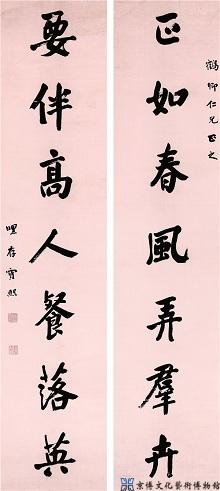 鶴卿仁兄正之
正如春風弄群卉
要伴高人餐落英
寶熙
京博文化藝術博物館